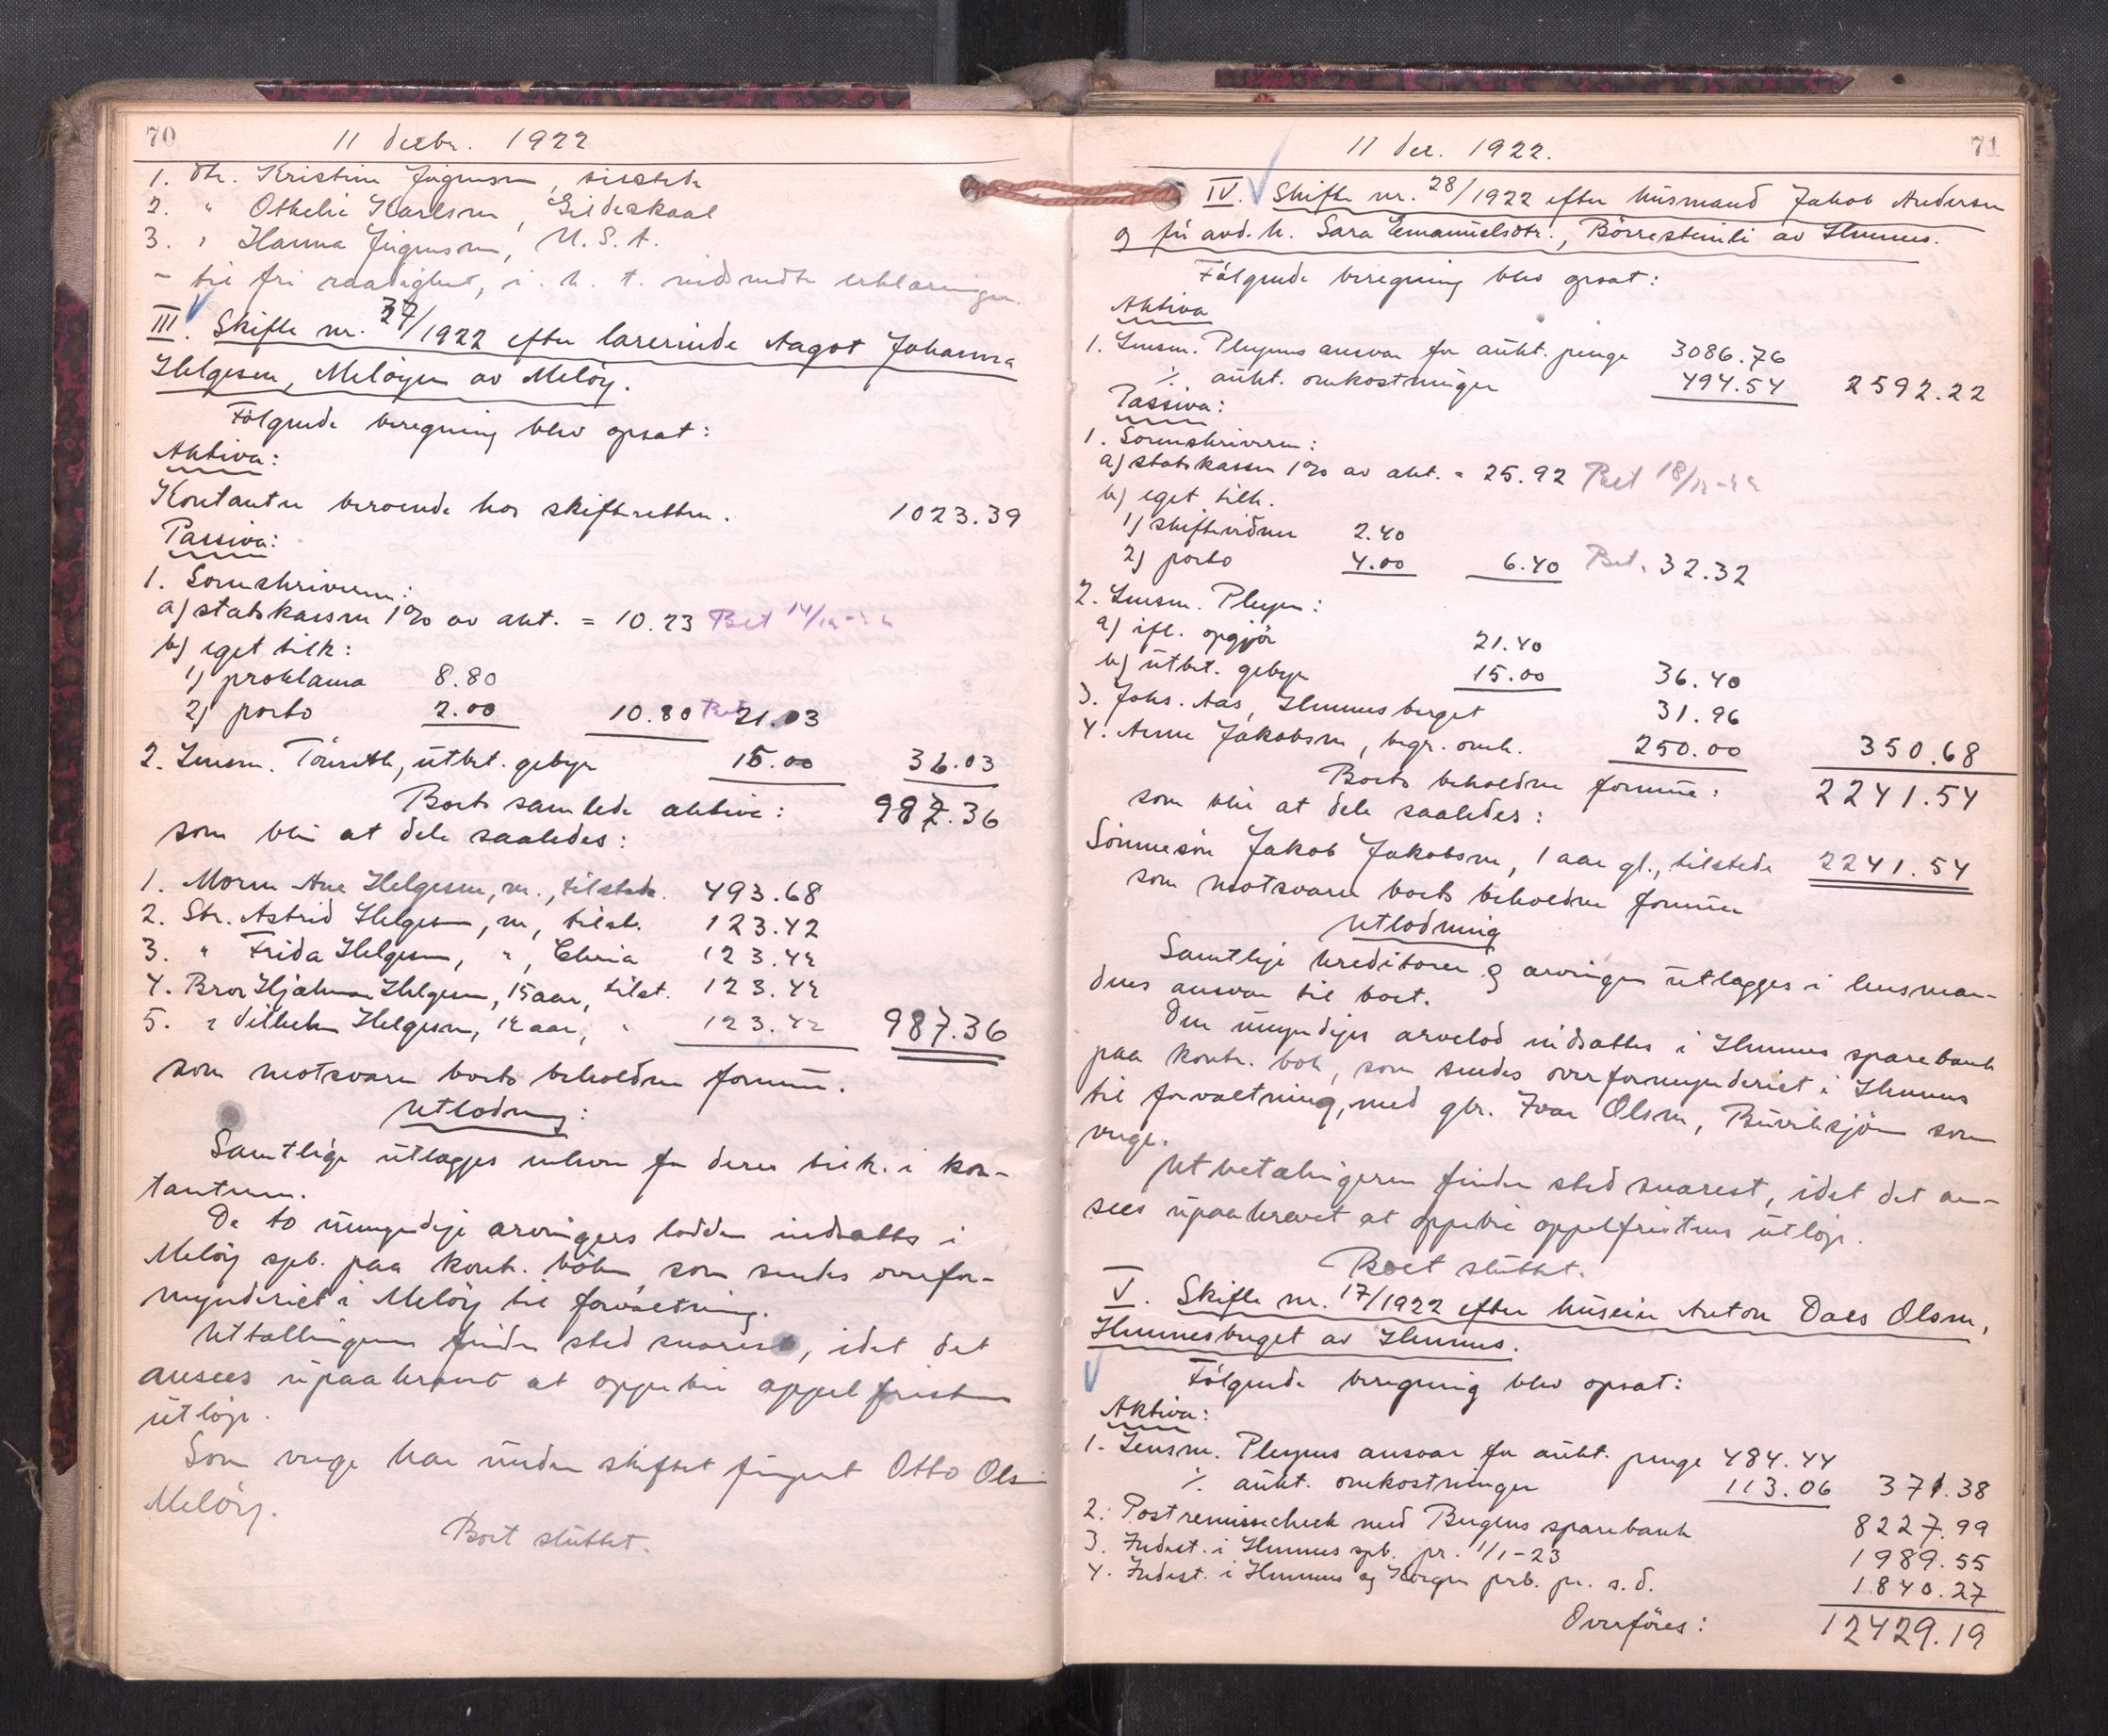 70
11 decbr. 1922
1. Dtr. Kristine Jörgensen, tilstede
2. " Othelie Karlsen, Gildeskaal
3. " Hanna Jörgensen, U.S.A.
- til fri raadighet, i. h. t. nedsendte erklæringer.
III. Skifte nr. 27/1922 efter lærerinde Aagot Johanna
Helgesen, Melöyen av Melöy.
Fölgende beregning blev opsat:
Aktiva:
Kontanter beroende hos skifteretten. 1023.39
Passiva:
1. Sorenskriveren:
a) statskassen 1% av akt. = 10.23 Bet 14/12-22
b) eget tilk:
1) proklama 8.80
2) porto 2.00 10.80 Bet 21.03
2. Lensm. utbet. gebyr 15.00 36.03
Boets samlede aktiva: 987.36
som blir at dele saaledes:
1. Moren Ane Helgesen, m., tilstede. 493.68
2. Str. Astrid Helgesen, m, tilst. 123.42
3. " Frida Helgesen, ", Chria 123.42
4. Bror Hjalmar Helgesen, 15 aar, tilst. 123.42
5. " Vilhelm Helgesen, 12 aar, " 123.42 987.36
som motsvarer boets beholdne formue.
Utlodning:
Samtlige utlægges enhver for deres tilk. i kon-
tanter.
De to umyndige arvingers lodder indsættes i
Melöy spb. paa kontr. böker, som sendes overfor-
mynderiet i Melöy til forvaltning.
Utbetalingen finder sted snarest, idet det
ansees upaakrævet at oppebie appelfristens
utlöp.
Som verge har under skiftet fungert Otto Ols
Melöy.
Boet sluttet.
71
11 dec. 1922.
IV. Skifte nr. 28/1922 efter husmand Jakob Andersen
og för avd. h. Sara Emanuelsdtr., Börresteinli av Hemnes.
Fölgende beregning blev opsat:
Aktiva
1. Lensm. Pleyms ansvar for aukt. penge 3086.76
÷ aukt. omkostninger 494.54 2592.22
Passiva:
1. Sorenskriveren:
a) statskassen 1% av akt. = 25.92 Bet 18/12-22
b) eget tilk.
1) skiftevidner 2.40
2) porto 4.00 6.40 Bet. 32.32
2. Lensm. Pleym:
a) ifl. opgjör 21.40
b) utbet. gebyr 15.00 36.40
3. Johs. Aas, Hemnesberget 31.96
4. Arne Jakobsen, begr. omk. 250.00 350.68
Boets beholdne formue: 2241.54
som blir at dele saaledes:
Sönnesön Jakob Jakobsen, 1 aar gl., tilstede 2241.54
som motsvarer boets beholdne formue
Utlodning
Samtlige kreditorer og arvingen utlægges i lensman-
dens ansvar til boet.
Den umyndiges arvelod indsættes i Hemnes sparebank
paa kontr. bok, som sendes overformynderiet i Hemnes
til forvaltning, med gbr. Ivar Olsen, som
verge.
Utbetalingeren finder sted snarest, idet det an-
sees upaakrævet at oppebie appelfristens utlöp.
Boet sluttet.
V. Skifte nr. 17/1922 efter huseier Anton Daes Olsen,
Hemnesberget av Hemnes.
Fölgende beregning blev opsat:
Aktiva:
1. Lensm. Pleyms ansvar for aukt. penge 484.44
÷ aukt. omkostninger 113.06 371.38
2. Postremissecheck med Bergens sparebank 8227.99
3. Indest. i Hemnes spb. pr. 1/1-23 1989.55
4. Indest. i Hemnes og Korgen prb. pr. s.d. 1840.27
Overföres: 12429.19